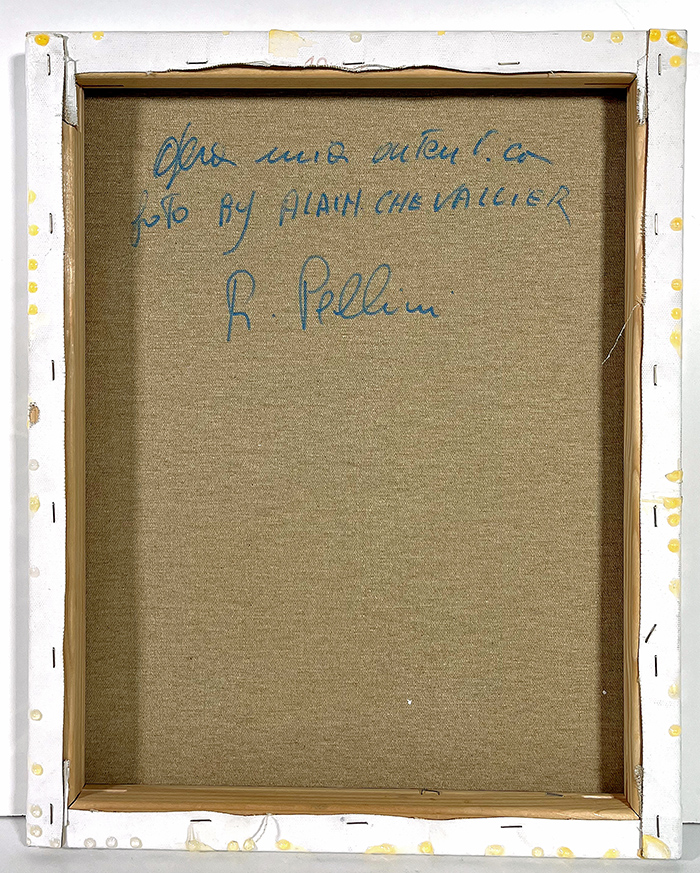 Opera mia autentica
foto By ALAIN CHEVALLIER
R. Pellini